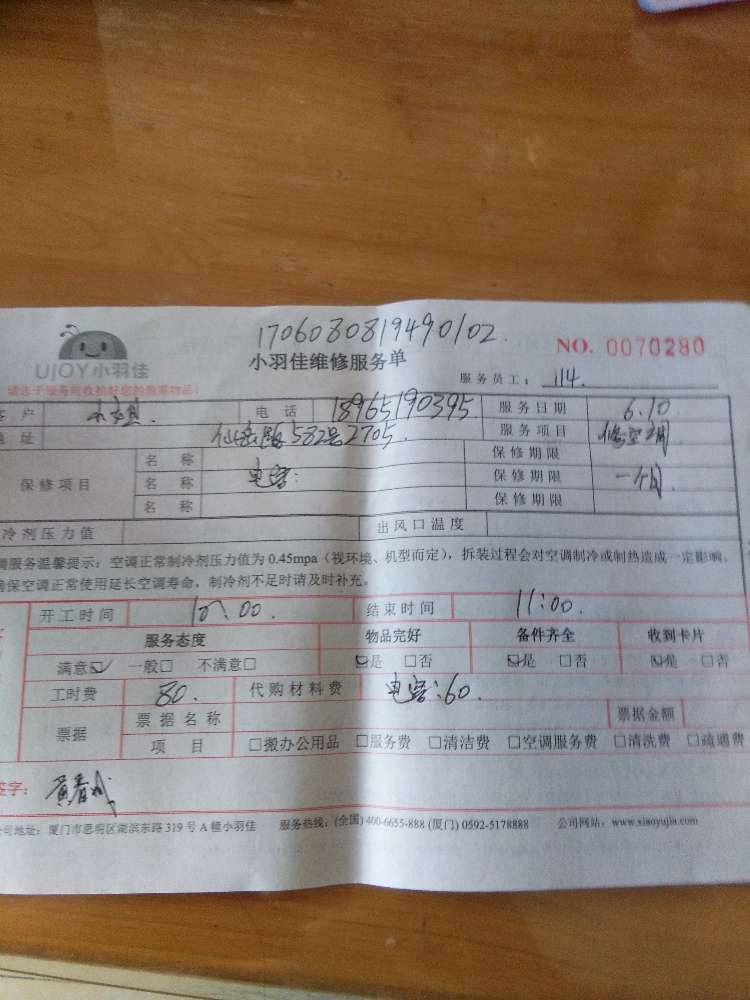 1706080819490102.
UJOY小羽佳
小羽佳维修服务单
NO. 0070280
服务员工: 114.
户 电话 18965190395 服务日期 6.10
地址 582号2705. 服务项目 修空调
名称 保修期限
保修项目 名称 电容: 保修期限 一个月.
名称 保修期限
冷剂压力值 出风口温度
调服务温馨提示:空调正常制冷剂压力值为 0.45mpa(视环境、机型而定),拆装过程会对空调制冷或制热造成一定影响,
确保空调正常使用延长空调寿命,制冷剂不足时请及时补充。
开工时间 10:00. 结束时间 11:00.
服务态度 物品完好 备件齐全 收到卡片
满意☑ 一般□ 不满意□ ☑是 □否 ☑是 □否 ☑是 □否
工时费 80. 代购材料费 电容:60.
票据 票据名称 票据金额
项目 □搬办公用品 □服务费 □清洁费 □空调服务费 □清洗费 □疏通费
签字:
公司地址:厦门市思明区湖滨东路 319 号 A 幢小羽佳 服务热线:(全国) 400-6655-888 (厦门) 0592-5178888 公司网站:www.xiaoyujia.com